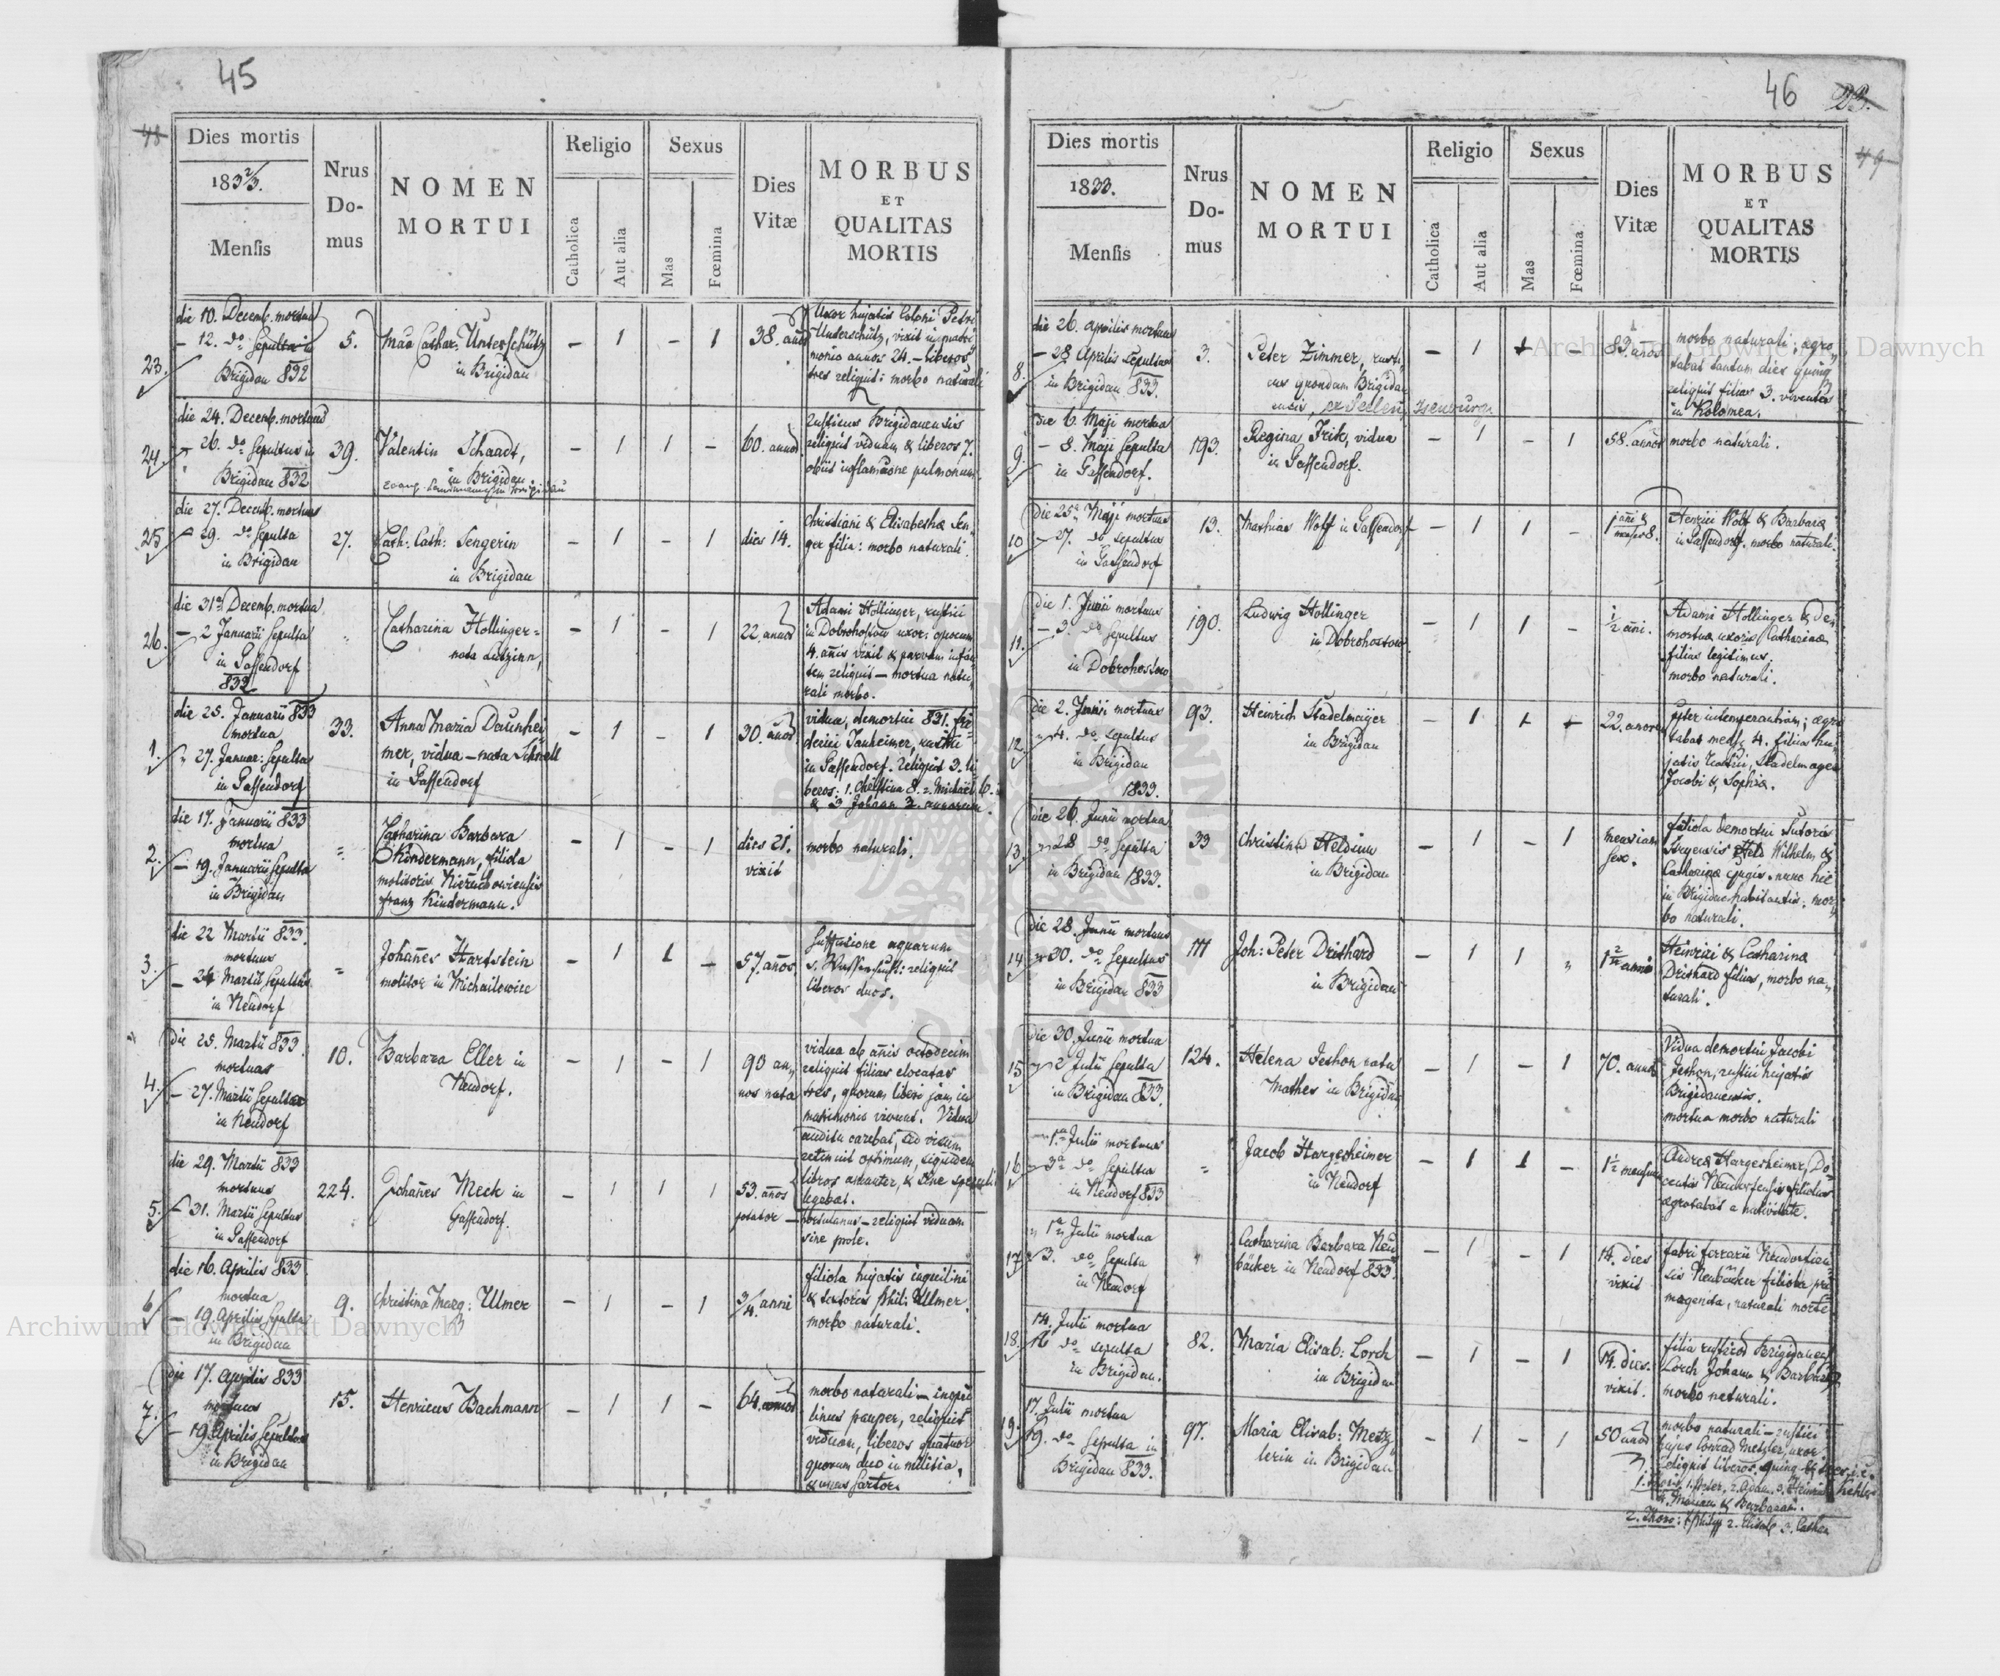 45
48
Dies mortis
1832/3.
Mensis
Nrus
Do-
mus
NOMEN
MORTUI
Religio
Catholica
Aut alia
Sexus
Mas
Fœmina
Dies
Vitæ
MORBUS
ET
QUALITAS
MORTIS
23.
die 10. Decemb. mortua
— 12. do sepulta in
Brigidau 832
5.
Maria Cathar. Unterschütz
in Brigidau
– 1 – 1
38. annos
Uxor hujatis Coloni Petri
Unterschütz, vixit in matri
monio annos 24. – liberos
tres reliquit: morbo naturali
24.
die 24. Decemb. mortuus
— 26. do sepultus in
Brigidau 832
39.
Valentin Schaadt,
in Brigidau
– 1 1 –
60. annos
rusticus Brigidauensis
reliquit viduam & liberos 7.
obiit inflamatione pulmonum.
25
die 27. Decemb. mortua
— 29. do sepulta
in Brigidau
27.
Cath. Cath: Sengerin
in Brigidau
– 1 – 1
dies 14.
Christiani & Elisabetha Sen
ger filia: morbo naturali.
26.
die 31a Decemb. mortua
— 2 Januarii sepulta
in Gassendorf
832
"
Catharina Hollinger-
nata Lutzinn,
– 1 – 1
22. annos
Adami Hollinger, rustici
in Dobrohostow uxor: quocum
4. annis vixit & parvum infan
tem reliquit – mortua natu
rali morbo.
1.
die 25. Januarii 833
mortua
" 27. Januar: sepulta
in Gassendorf
33.
Anna Maria Daunhei
mer, vidua – nata Schnell
in Gassendorf
– 1 – 1
30. annos
vidua, demortui 831. fri
derici Tauheimer, rustici
in Gassendorf. reliquit 3. li
beros: 1. Christina 8. 2. Michael 6.
& 3 Johann 2. annorum.
2.
die 17. Januarii 833
mortua
— 19. Januarii sepulta
in Brigidau
"
Catharina Barbara
Kindermann, filiola
molitoris Niezuchowiensis
franz Kindermann.
– 1 – 1
dies 21.
vixit
morbo naturali.
3.
die 22 Martii 833.
mortuus
— 24 Martii sepultus
in Neudorf
"
Johañes Hartstein
molitor in Michailowice
– 1 1 –
57. años
Suffusione aquarum
s. Wassersucht: reliquit
liberos duos.
4.
die 25. Martii 833.
mortuas
— 27. Martii sepultae
in Neudorf
10.
Barbara Eller in
Neudorf.
– 1 – 1
90 an,,
nos nata
vidua ab añis octodecim
reliquit filias elocatas
tres, quorum liberi jam in
matrimonio vivunt. Vidua
auditu carebat, sed visum
retinuit optimum, siquidem
libros amanter, & sine speculi
legebat.
5.
die 29. Martii 833
mortuus
— 31. Martii sepultus
in Gassendorf
224.
Johañes Meck in
Gassendorf.
– 1 1 1
53. años
potator —
hortulanus – reliquit viduam
sine prole.
6
die 16. Aprilis 833
mortua
— 19. Aprilis sepulta
in Brigidau
9.
Christina Marg: Ulmer
– 1 – 1
3/4. anni
filiola hujatis inquilini
& textoris Phil: Ulmer.
morbo naturali.
7.
die 17. Aprilis 833
mortuus
— 19. Aprilis sepultus
in Brigidau
15.
Henricus Bachmann
– 1 1 –
64. annos
morbo naturali – inqui
linus pauper, reliquit
viduam, liberos quatuor
quorum duo in militia,
& unus sartor.
46
23.
49
Dies mortis
1833.
Mensis
Nrus
Do-
mus
NOMEN
MORTUI
Religio
Catholica
Aut alia
Sexus
Mas
Fœmina
Dies
Vitæ
MORBUS
ET
QUALITAS
MORTIS
8.
die 26. Aprilis mortuus
— 28 Aprilis sepultus
in Brigidau 833.
3.
Peter Zimmer, rusti
cus quondam Brigidau
ensis,
– 1 1 –
83. años
morbo naturali; aegro,,
tabat tantum dies quinq
reliquit filias 3. viventes
in Kolomea.
9
die 6. Maji mortua
— 8. Maji sepulta
in Gassendorf.
193.
Regina Frik, vidua
in Gassendorf.
– 1 – 1
58. años
morbo naturali.
10
die 25a Maji mortuus
— 27. do sepultus
in Gassendorf
13.
Mathias Wolf in Gassendorf
– 1 1 –
1 añi &
menses 8.
Henrici Wolf & Barbara
in Gassendorf. morbo naturali.
11.
die 1. Junii mortuus
— 3. do sepultus
in Dobrohostow
190.
Ludwig Hollinger
in Dobrohostow
– 1 1 –
1/2 añi.
Adami Hollinger & de
mortua uxoris Catharina
filius legitimus.
morbo naturali.
12.
die 2. Junii mortuus
" 4. do sepultus
in Brigidau
1833.
93.
Heinrich Stadelmayer
in Brigidau
– 1 1 –
22. annorum
Ester intemperantiam; aegro
tabat mens. 4. filius hu,,
jatis rustici, Stadelmayer
Jacobi & Sophia.
13
die 26. Junii mortua
" 28 do sepulta
in Brigidau 1833.
33
Christina Heldinn
in Brigidau
– 1 – 1
mensium
sex.
filiola demortui Sutoris
Stryensis Held Wilhelm &
Catharina conjugis. nunc hic
in Brigidau habitantis: mor
bo naturali.
14
die 28. Junii mortuus
" 30. do sepultus
in Brigidau 833
111
Joh: Peter Drithard
in Brigidau
– 1 1 "
Heinrici & Catharina
Drithard filius, morbo na,,
turali.
15
die 30. Junii mortua
" 2 Julii sepulta
in Brigidau 833.
124.
Helena Jethon nata
Mathes in Brigidau
– 1 – 1
70. annos
Vidua demortui Jacobi
Jethon, rustici hujatis
Brigidauensis.
mortua morbo naturali
16
— 1.a Julii mortuus
" 3a do sepultus
in Neudorf 833
"
Jacob Hargesheimer
in Neudorf
– 1 1 –
1 1/2 mensium
Andreæ Hargesheimer, Do,,
centis Neudorfensis filiolus
aegrotabat a nativitate.
17
" 1a Julii mortua
" 3. do sepulta
in Neudorf
"
Catharina Barbara Neu
bäcker in Neudorf 833.
– 1 – 1
14. dies
vixit
fabri ferrarii Neudorfian
sis Neubäcker filiola pri
magenita, naturali morte.
18.
14. Julii mortua
16 do sepulta
in Brigidau.
82.
Maria Elisab: Lorch
in Brigidau
– 1 – 1
14. dies.
vixit.
filia rustici Brigidauens
Lorch Johann & Barbara
morbo naturali.
19.
17. Julii mortua
19. do sepulta in
Brigidau 833.
97.
Maria Elisab: Metz
lerin in Brigidau
– 1 – 1
50 años
morbo naturali – rustici
hujus Conrad Metzler, uxor
reliquit liberos
1. Peter, 2. Adam. 3. Heinrich
4. Mariam & Barbaram.
2. Thoro: 1 Philipp 2. Elisab 3. Cathar
Archiwum Główne Akt Dawnych
Archiwum Główne Akt Dawnych